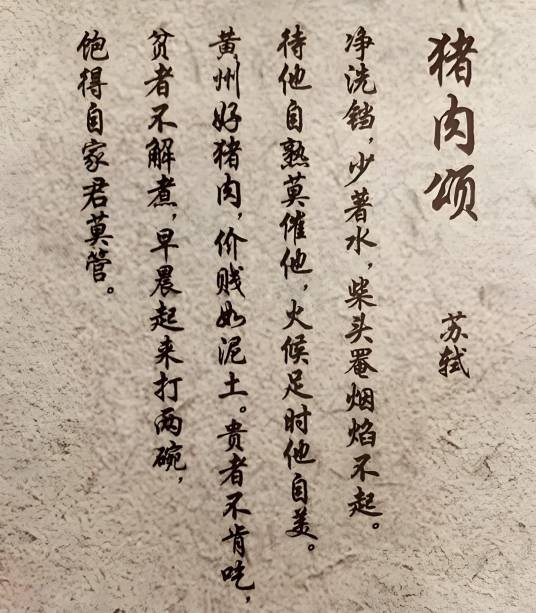 猪肉颂
苏轼
净洗铛，少著水，柴头罨烟焰不起。
待他自熟莫催他，火候足时他自美。
黄州好猪肉，价贱如泥土。贵者不肯吃，
贫者不解煮，早晨起来打两碗，
饱得自家君莫管。